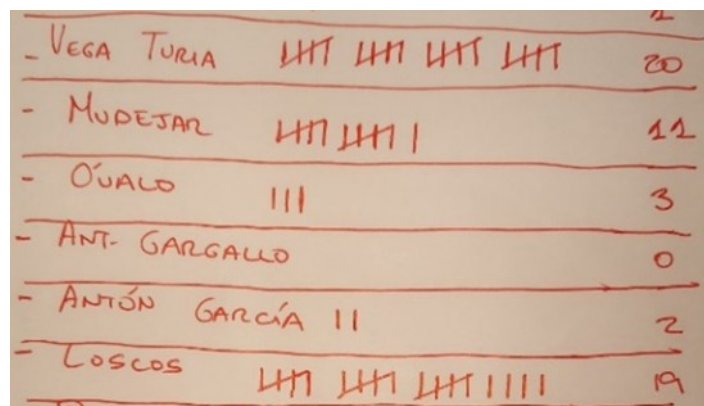 - VEGA TURIA 20
- MUDEJAR 11
- ÓVALO 3
- ANT. GARGALLO 0
- ANTÓN GARCÍA 2
- LOSCOS 19